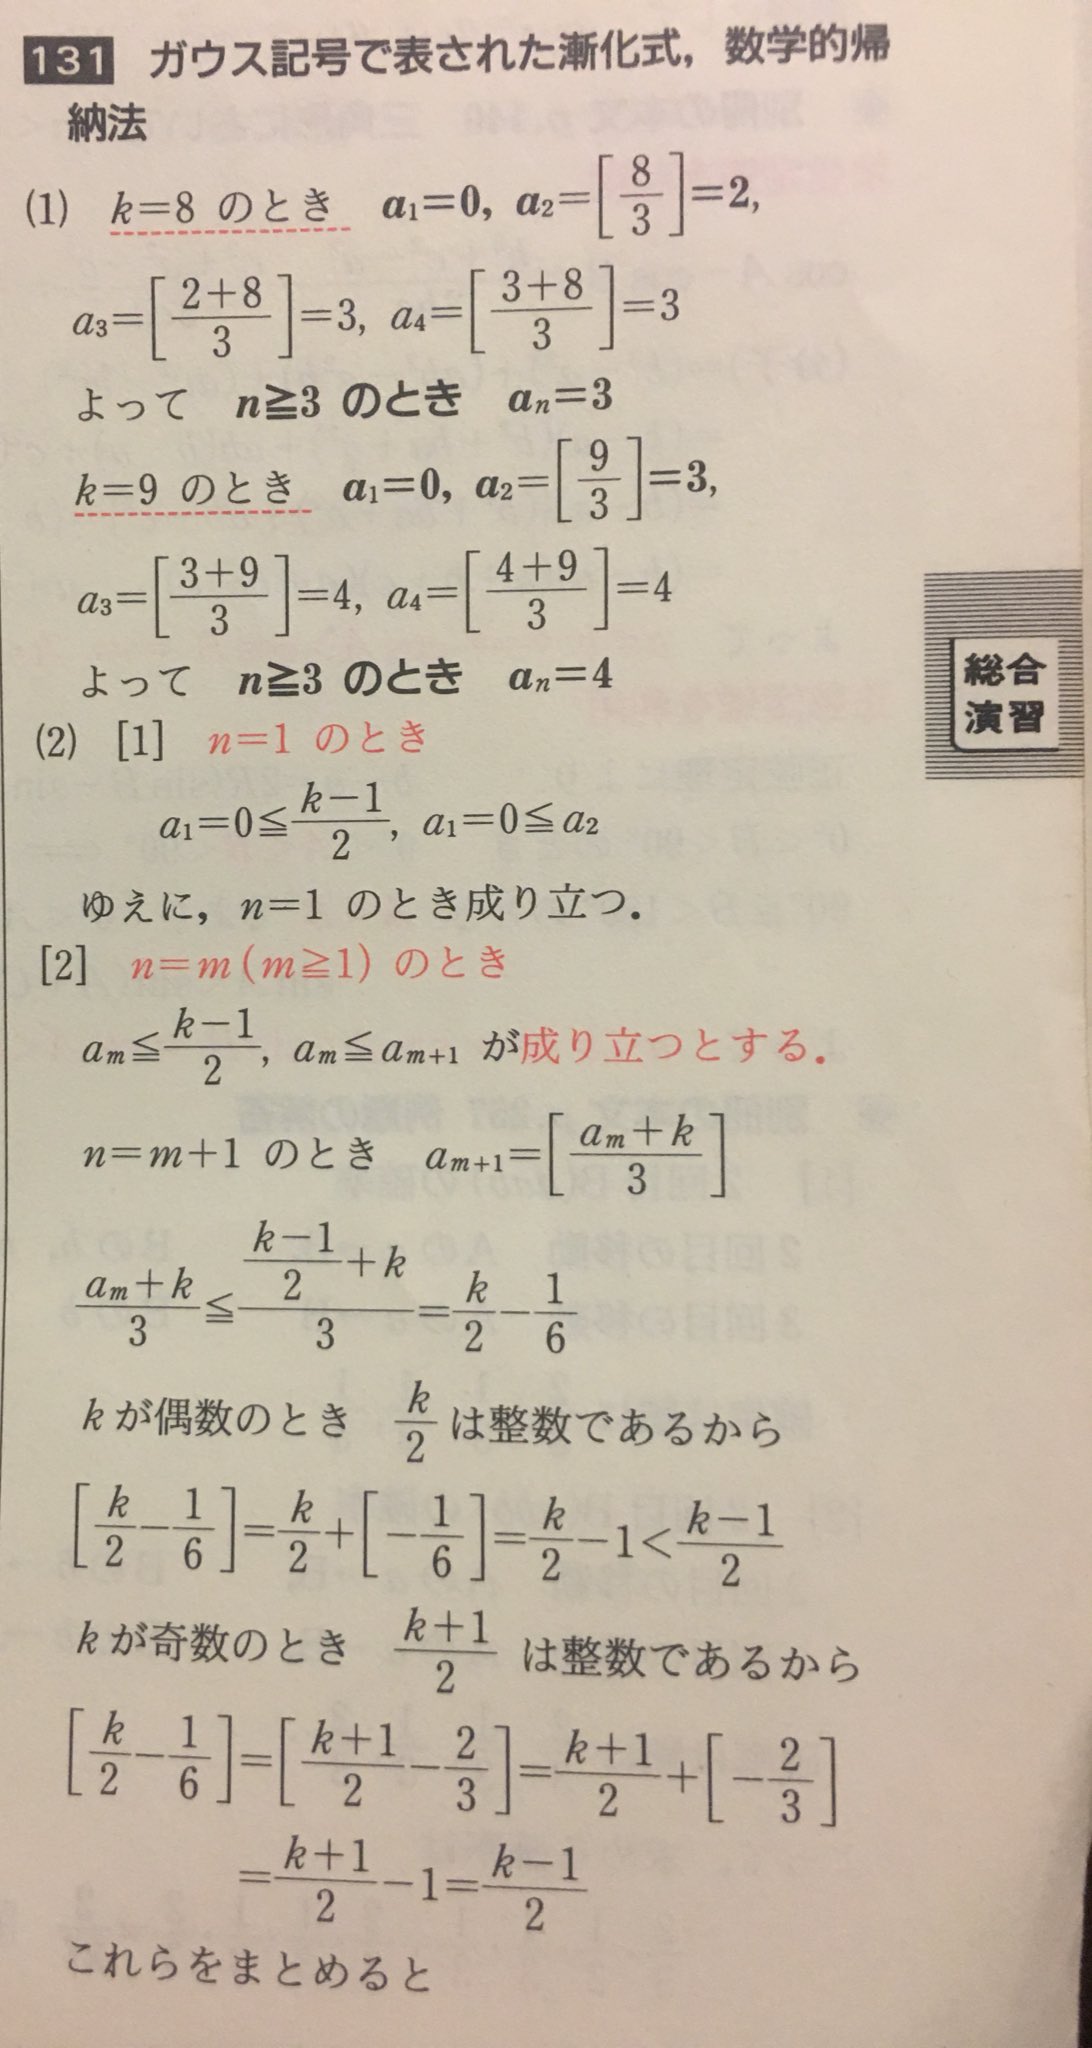 131 ガウス記号で表された漸化式，数学的帰
納法
(1) k=8 のとき a₁=0, a₂=[8/3]=2,
a₃=[(2+8)/3]=3, a₄=[(3+8)/3]=3
よって n≧3 のとき aₙ=3
k=9 のとき a₁=0, a₂=[9/3]=3,
a₃=[(3+9)/3]=4, a₄=[(4+9)/3]=4
よって n≧3 のとき aₙ=4
総合
演習
(2) [1] n=1 のとき
a₁=0≦(k−1)/2, a₁=0≦a₂
ゆえに，n=1 のとき成り立つ．
[2] n=m (m≧1) のとき
aₘ≦(k−1)/2, aₘ≦aₘ₊₁ が成り立つとする．
n=m+1 のとき aₘ₊₁=[(aₘ+k)/3]
(aₘ+k)/3≦((k−1)/2+k)/3=k/2−1/6
k が偶数のとき k/2 は整数であるから
[k/2−1/6]=k/2+[−1/6]=k/2−1<(k−1)/2
k が奇数のとき (k+1)/2 は整数であるから
[k/2−1/6]=[(k+1)/2−2/3]=(k+1)/2+[−2/3]
=(k+1)/2−1=(k−1)/2
これらをまとめると